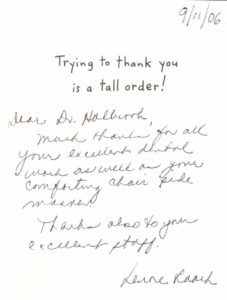 9/11/06
Trying to thank you
is a tall order!
Dear Dr. Holbrook,
Much thanks for all
your excellent dental
work as well as your
comforting chair side
manner.
Thanks also to your
excellent staff.